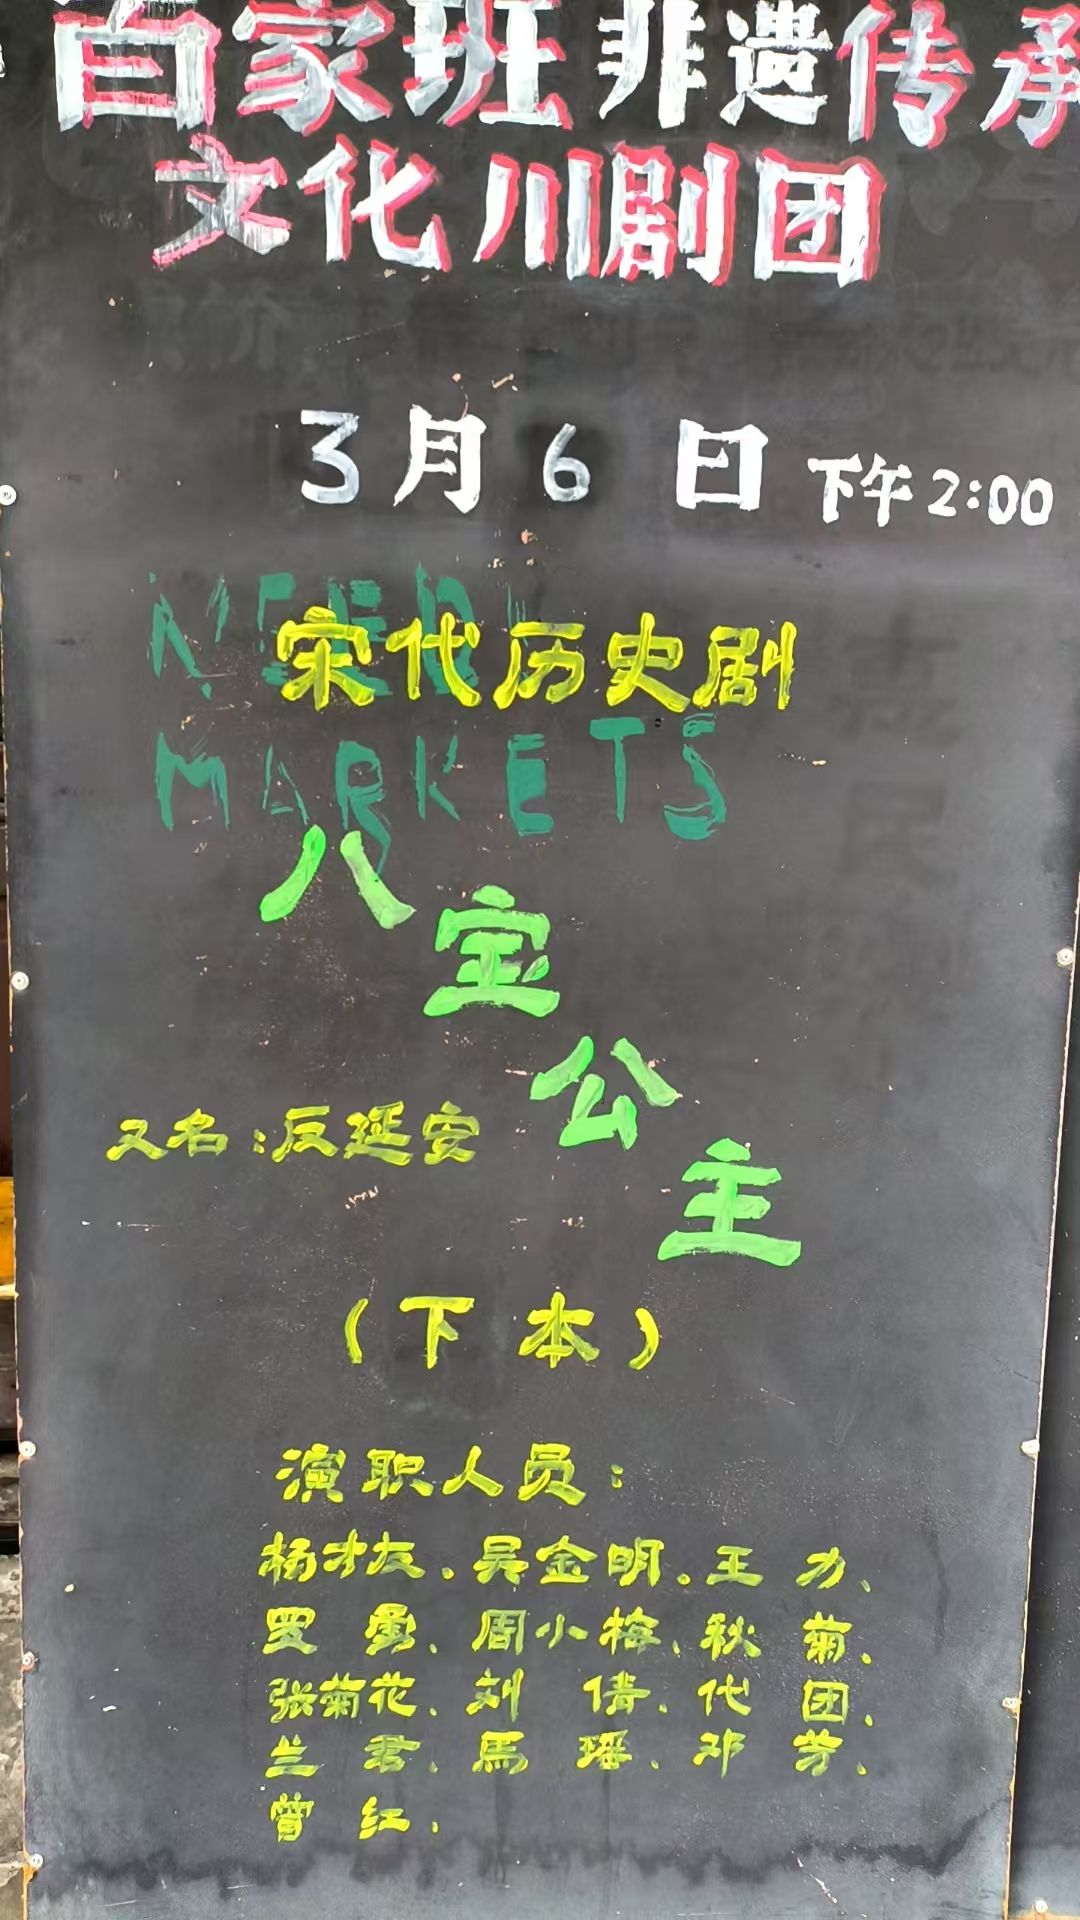 百家班非遗传承
文化川剧团
3月6日 下午2:00
宋代历史剧
MARKETS
八宝公主
又名:反延安
(下本)
演职人员:
杨才友、吴金明、王力、
罗勇、周小梅、秋菊、
张菊花、刘倩、代团、
兰君、馬瑶、邓芳、
曾红、